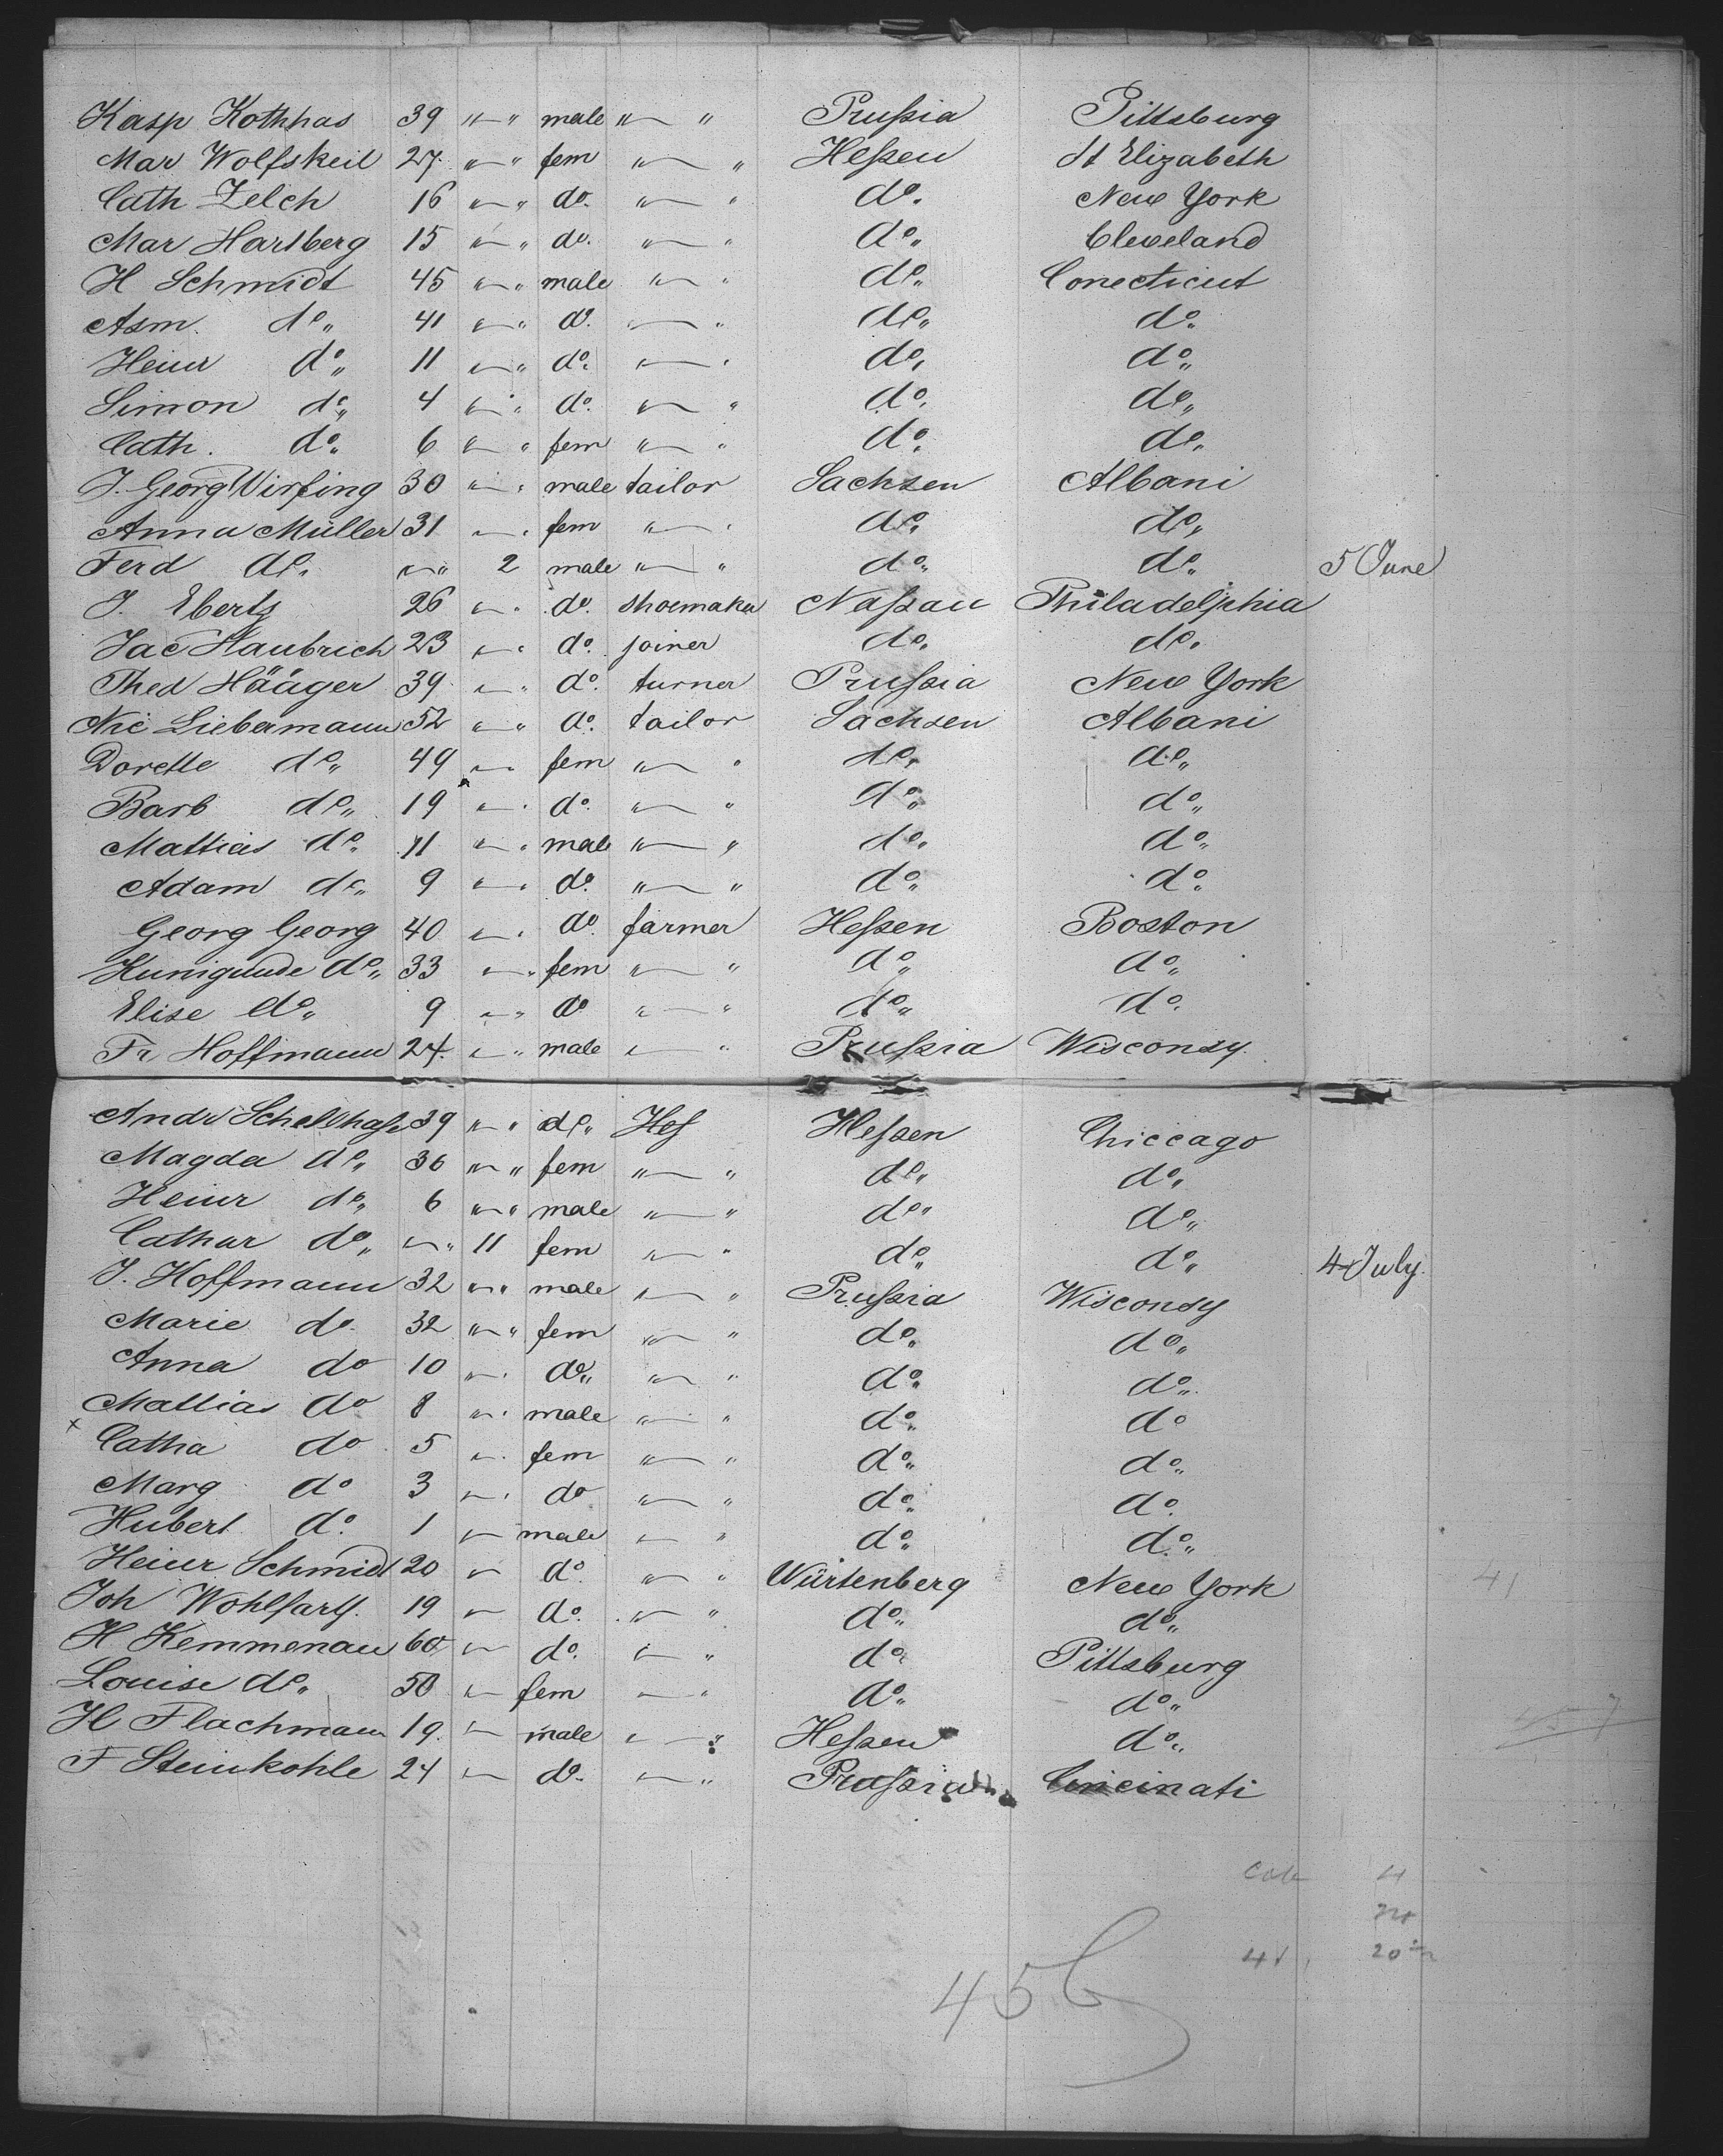 Kasp Kothhas 39 " " male " " Prußia Pittsburg
Mar Wolfskeil 27. " " fem " " Heßen St Elizabeth
Cath Zelch 16 " " do. " " do. New York
Mar Hartberg 15 " " do. " " do. Cleveland
H Schmidt 45 " " male " " do. Conecticut
Asm. do. 41 " " do. " " do. do.
Heinr do. 11 " " do. " " do. do.
Simon do. 4 " " do. " " do. do.
Cath. do. 6 " " fem " " do. do.
J. Georg Wirfing 30 " " male tailor Sachsen Albani
Anna Müller 31 " " fem " " do. do.
Ferd do. " " 2 male " " do. do. 5 June
J. Eberts 26 " " do. shoemaker Naßau Philadelphia
Jac Haubrich 23 " " do. joiner do. do.
Thed Hääger 39 " " do. turner Prußia New York
Nic Liebermann 52 " " do. tailor Sachsen Albani
Dorette do. 49 " fem " " do. do.
Barb do. 19 " " do. " " do. do.
Mattias do. 11 " " male " " do. do.
Adam do. 9 " " do. " " do. do.
Georg Georg 40 " " do. farmer Heßen Boston
Kunigunde do. 33 " " fem " " do. do.
Elise do. 9 " " do " " do. do.
Fr Hoffmann 24. " " male " " Prußia Wisconsy.
Andr Schellhase 39 " " do. Heßen Chiccago
Magda do. 36 " " fem " " do. do.
Heinr do. 6 " " male " " do. do.
Cathar do. " " 11 fem " " do. do. 4 July.
J. Hoffmann 32 " " male " " Prußia Wisconsy
Marie do. 32 " " fem " " do. do.
Anna do 10 " " do. " " do. do.
Mattias do 8 " " male " " do. do
x Catha do 5 " " fem " " do. do.
Marg do 3 " " do " " do. do.
Hubert do. 1 " male " " do. do.
Heinr Schmidt 20 " do. " " Würtenberg New York 41
Joh Wohlfart. 19 " do. " " do. do.
H Kemmenau 60 " do. " " do. Pittsburg
Louise do. 50 " fem " " do. do.
H Flachmann 19. " male " " Heßen do.
F Steinkohle 24 " do. " " Prußia Cincinati
4
41 20
456